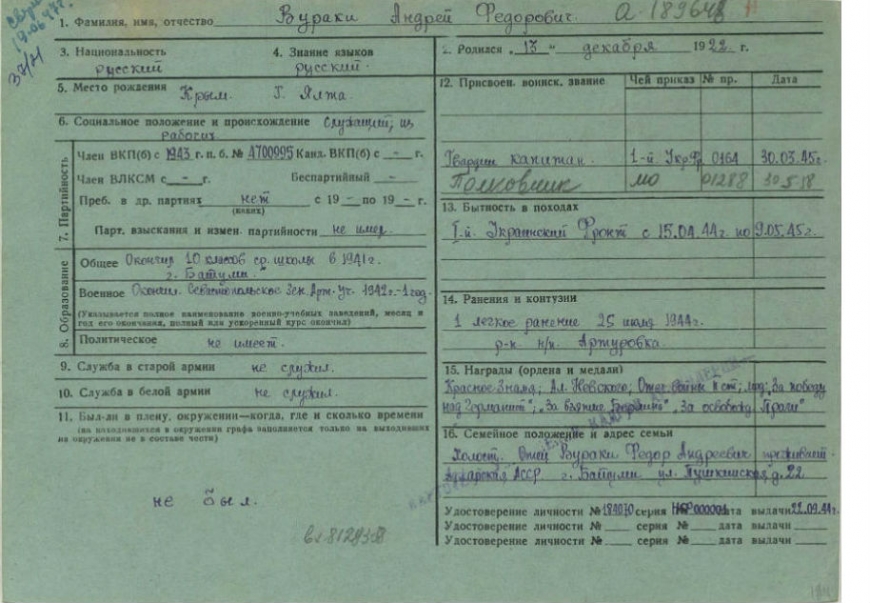 1. Фамилия, имя, отчество Вураки Андрей Федорович. А-189648
3. Национальность русский
4. Знание языков русский.
5. Место рождения Крым. г. Ялта.
6. Социальное положение и происхождение служащий; из
рабочих
7. Партийность
Член ВКП(б) с 1943 г. п. б. № 4700995 Канд. ВКП(б) с - г.
Член ВЛКСМ с - г. Беспартийный -
Преб. в др. партиях нет с 19 - по 19 - г.
(каких)
Парт. взыскания и измен. партийности не имел
8. Образование
Общее Окончил 10 классов ср. школы в 1941г.
г. Батуми.
Военное Окончил. Севастопольское Зен. Арт. Уч. 1942г.-1 год.
(Указывается полное наименование военно-учебных заведений, месяц и
год его окончания, полный или ускоренный курс окончил)
Политическое не имеет.
9. Служба в старой армии не служил.
10. Служба в белой армии не служил.
11. Был-ли в плену, окружении—когда, где и сколько времени
(на находившихся в окружении графа заполняется только на выходивших
из окружения не в составе части)
не был.
2. Родился „13" декабря 1922 г.
12. Присвоен. воинск. звание Чей приказ № пр. Дата
Гвардии капитан. 1-й Укр.Фр 0164 30.03.45г.
Полковник МО 01288 30.5.58
13. Бытность в походах
I-й. Украинский Фронт с 15.04.44г. по 9.05.45г.
14. Ранения и контузии
1 легкое ранение 25 июля 1944г.
р-н н/п Артуровка.
15. Награды (ордена и медали)
Красное Знамя; Ал. Невского; Отеч. войны II ст; мед; „За победу
над Германией"; „За взятие Берлина" „За освобожд. Праги"
16. Семейное положение и адрес семьи
Холост. Отец Вураки Федор Андреевич проживает
Аджарская АССР г. Батуми ул. Пушкинская, д. 22
Удостоверение личности № серия дата выдачи 22.09.44г.
Удостоверение личности № серия № дата выдачи
Удостоверение личности № серия № дата выдачи